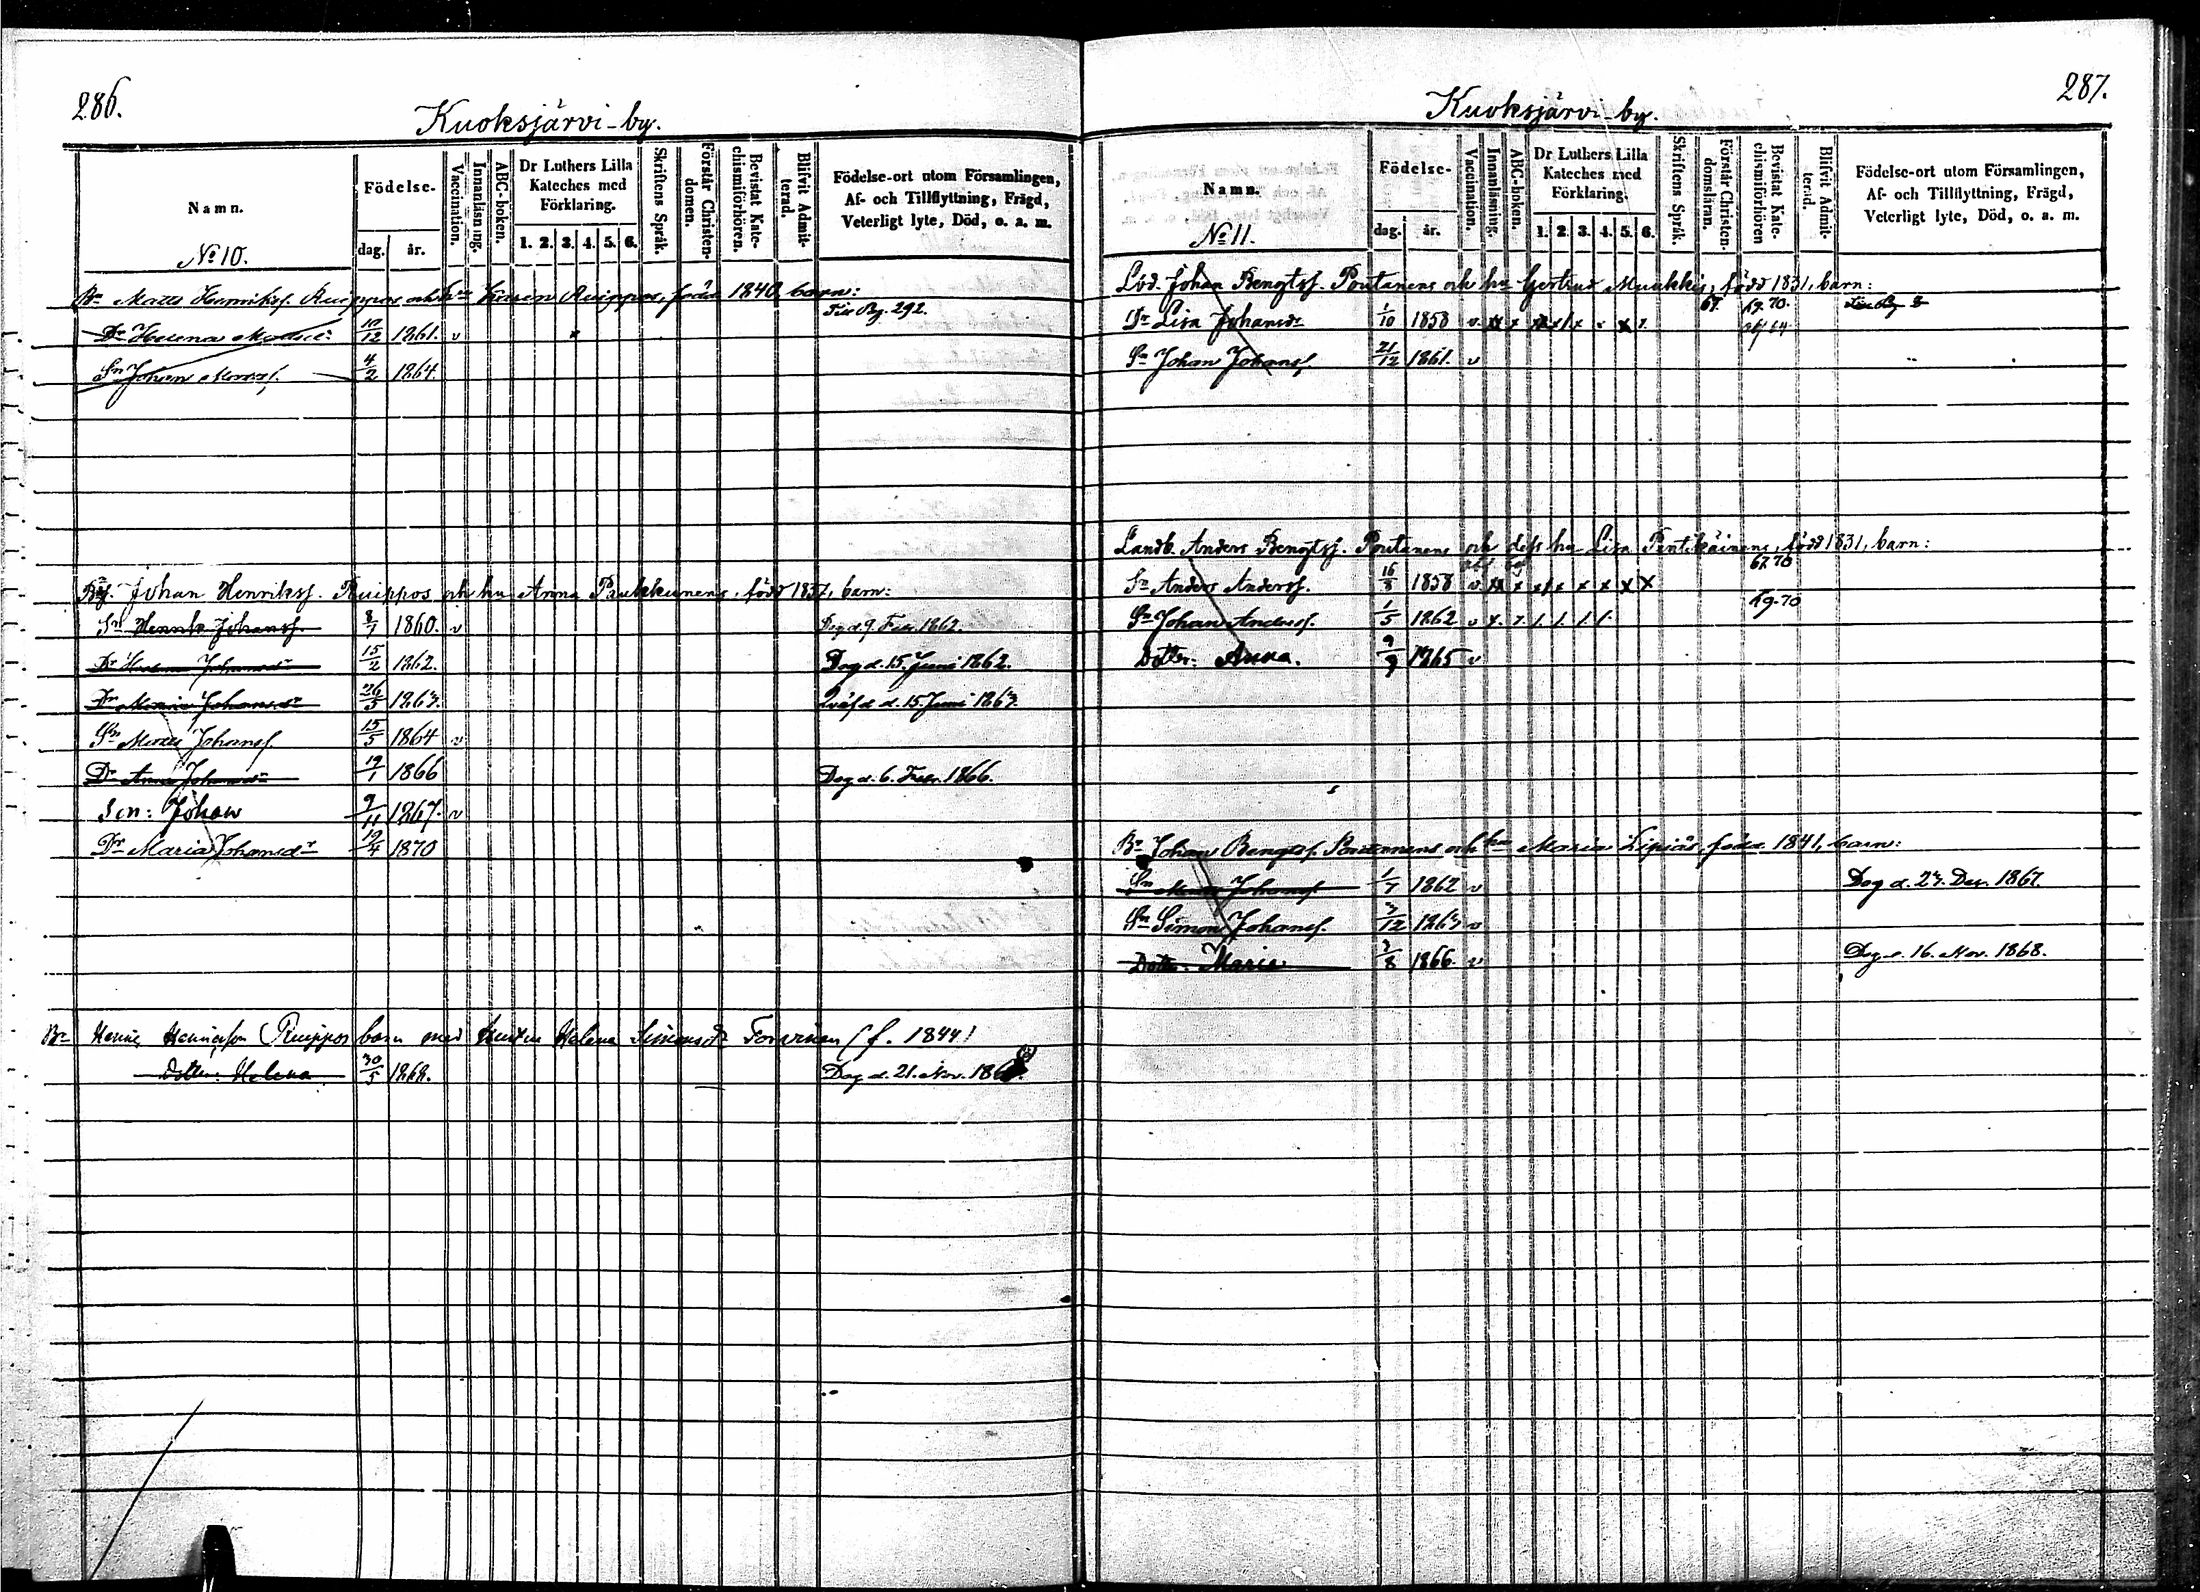 286.
Kuoksjärvi-by.
Namn.
Födelse-
dag. år.
Vaccination.
Innanläsning.
ABC-boken.
Dr Luthers Lilla Kateches med Förklaring.
1. 2. 3. 4. 5. 6.
Skriftens Språk.
Förstår Christendomen.
Bevistat Katechismiförhören.
Blifvit Admitterad.
Födelse-ort utom Församlingen,
Af- och Tillflyttning, Frägd,
Veterligt lyte, Död, o. a. m.
No 10.
Br Matts Henriksf. Ruippos och hu Karin Ruippos, född 1840, barn:
Dr Helena Matsd: 10/12 1861. v x Pag. 292.
Sn Johan Matsf. 4/2 1864.
Johan Henriksf. Ruippos och hu Anna Paukkunens, född 1837, barn:
Sn Henrik Johansf. 8/7 1860. v Dog d. 9 Febr. 1862.
Dr Helena Johansdr 15/2 1862. Dog d. 15 Juni 1862.
Dr Maria Johansdr 26/5 1863. Qväfd d. 15 Juni 1863.
Sn Matts Johansf. 15/5 1864 v
Dr Anna Johansdr 19/1 1866 Dog d. 6. Febr. 1866.
Son: Johan 9/11 1867. v
Dr Maria Johansdr 19/4 1870
Br Henric Henricsson Ruippos barn med hustru Helena Simonsdr Torvinen (f. 1844)
Dotter: Helena 30/5 1868. Dog d. 21. Nov. 1868.
287.
Kuoksjärvi-by.
Namn.
Födelse-
dag. år.
Vaccination.
Innanläsning.
ABC-boken.
Dr Luthers Lilla Kateches med Förklaring.
1. 2. 3. 4. 5. 6.
Skriftens Språk.
Förstår Christendomsläran.
Bevistat Katechismiförhören
Blifvit Admitterad.
Födelse-ort utom Församlingen,
Af- och Tillflyttning, Frägd,
Veterligt lyte, Död, o. a. m.
No 11.
Johan Bengtsf. Poutanens och hu Gertrud Muukkis, född 1831, barn:
Dr Lisa Johansdr 1/10 1858 v. x x 67. 69. 70.
Sn Johan Johansf. 21/12 1861. v
Landb. Anders Bengtsf. Poutanens och dess hu Lisa Pentikäinens, född 1831, barn:
Sn Anders Andersf. 16/8 1858 v. x x x x x x 67. 70
Sn Johan Andersf. 1/5 1862 v 69. 70
Dotter: Anna. 9/9 1865 v
Br Johan Bengtsf. Poutanens och hu Maria Lipiäs, född 1841, barn:
Sn Matts Johansf 1/7 1862 v Dog d. 23. Dec. 1867.
Sn Simon Johansf. 3/12 1863 v
Dotter: Maria 2/8 1866 v Dog d. 16. Nov. 1868.